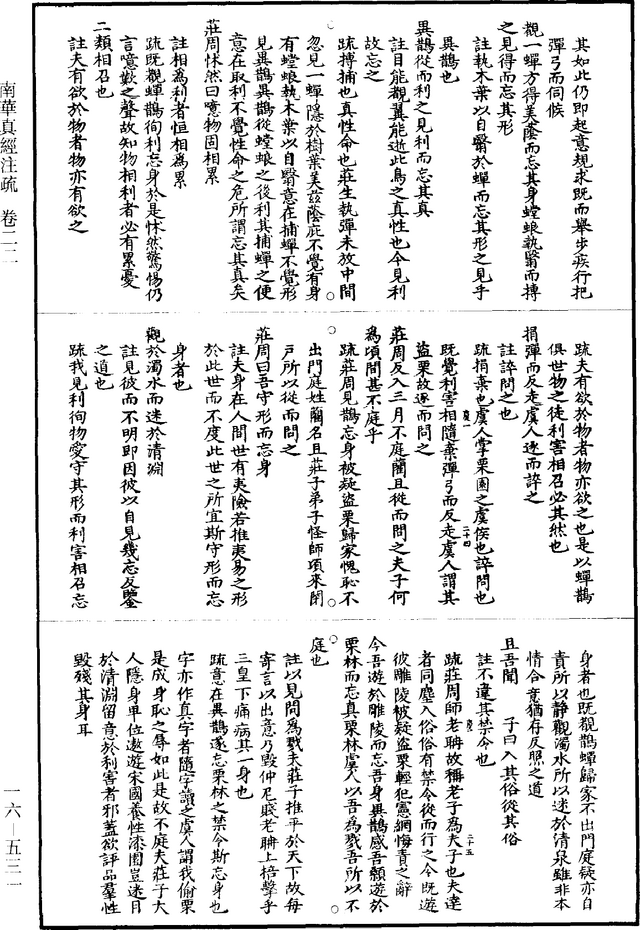 其如此仍即起意規求既而舉步疾行把
彈弓而伺候
覩一蟬方得美蔭而忘其身螳蜋執翳而搏
之見得而忘其形
註執木葉以自翳於蟬而忘其形之見乎
異鵲也
異鵲從而利之見利而忘其真
註目能覩翼能逝此鳥之真性也今見利
故忘之
疏搏捕也真性命也莊生執彈未放中間
忽見一蟬隱於樹葉美茲蔭庇不覺有身
有螳蜋執木葉以自翳意在捕蟬不覺形
見異鵲異鵲從螳蜋之後利其捕蟬之便
意在取利不覺性命之危所謂忘其真矣
莊周怵然曰噫物固相累
註相為利者恒相為累
疏既覩蟬鵲徇利忘身於是怵然驚惕仍
言噫歎之聲故知物相利者必有累憂
二類相召也
註夫有欲於物者物亦有欲之
疏夫有欲於物者物亦欲之也是以蟬鵲
俱世物之徒利害相召必其然也
捐彈而反走虞人逐而誶之
註誶問之也
疏捐棄也虞人掌栗園之虞候也誶問也
既覺利害相隨棄彈弓而反走虞人謂其
盜栗故逐而問之
莊周反入三月不庭藺且從而問之夫子何
為頃間甚不庭乎
疏莊周見鵲忘身被疑盜栗歸家愧恥不
出門庭姓藺名且莊子弟子怪師頃來閉
戶所以從而問之
莊周曰吾守形而忘身
註夫身在人間世有夷險若推夷易之形
於此世而不度此世之所宜斯守形而忘
身者也
觀於濁水而迷於清淵
註見彼而不明即因彼以自見幾忘反鑒
之道也
疏我見利徇物愛守其形而利害相召忘
身者也既覩鵲蟬歸家不出門庭疑亦自
責所以靜觀濁水所以迷於清泉雖非本
情合意猶存反照之道
且吾聞 子曰入其俗從其俗
註不違其禁令也
疏莊周師老聃故稱老子為夫子也夫達
者同塵入俗俗有禁令從而行之今既遊
彼雕陵被疑盜栗輕犯憲網悔責之辭
今吾遊於雕陵而忘吾身異鵲感吾顙遊於
栗林而忘真栗林虞人以吾為戮吾所以不
庭也
註以見問為戮夫莊子推平於天下故每
寄言以出意乃毀仲尼賤老聃上掊擊乎
三皇下痛病其一身也
疏意在異鵲遂忘栗林之禁令斯忘身也
字亦作真字者隨字讀之虞人謂我偷栗
是成身恥之辱如此是故不庭夫莊子大
人隱身卑位遨遊宋國養性漆園豈迷目
於清淵留意於利害者邪蓋欲評品羣性
毀殘其身耳
南華真經注疏 卷二二
一六—五三一